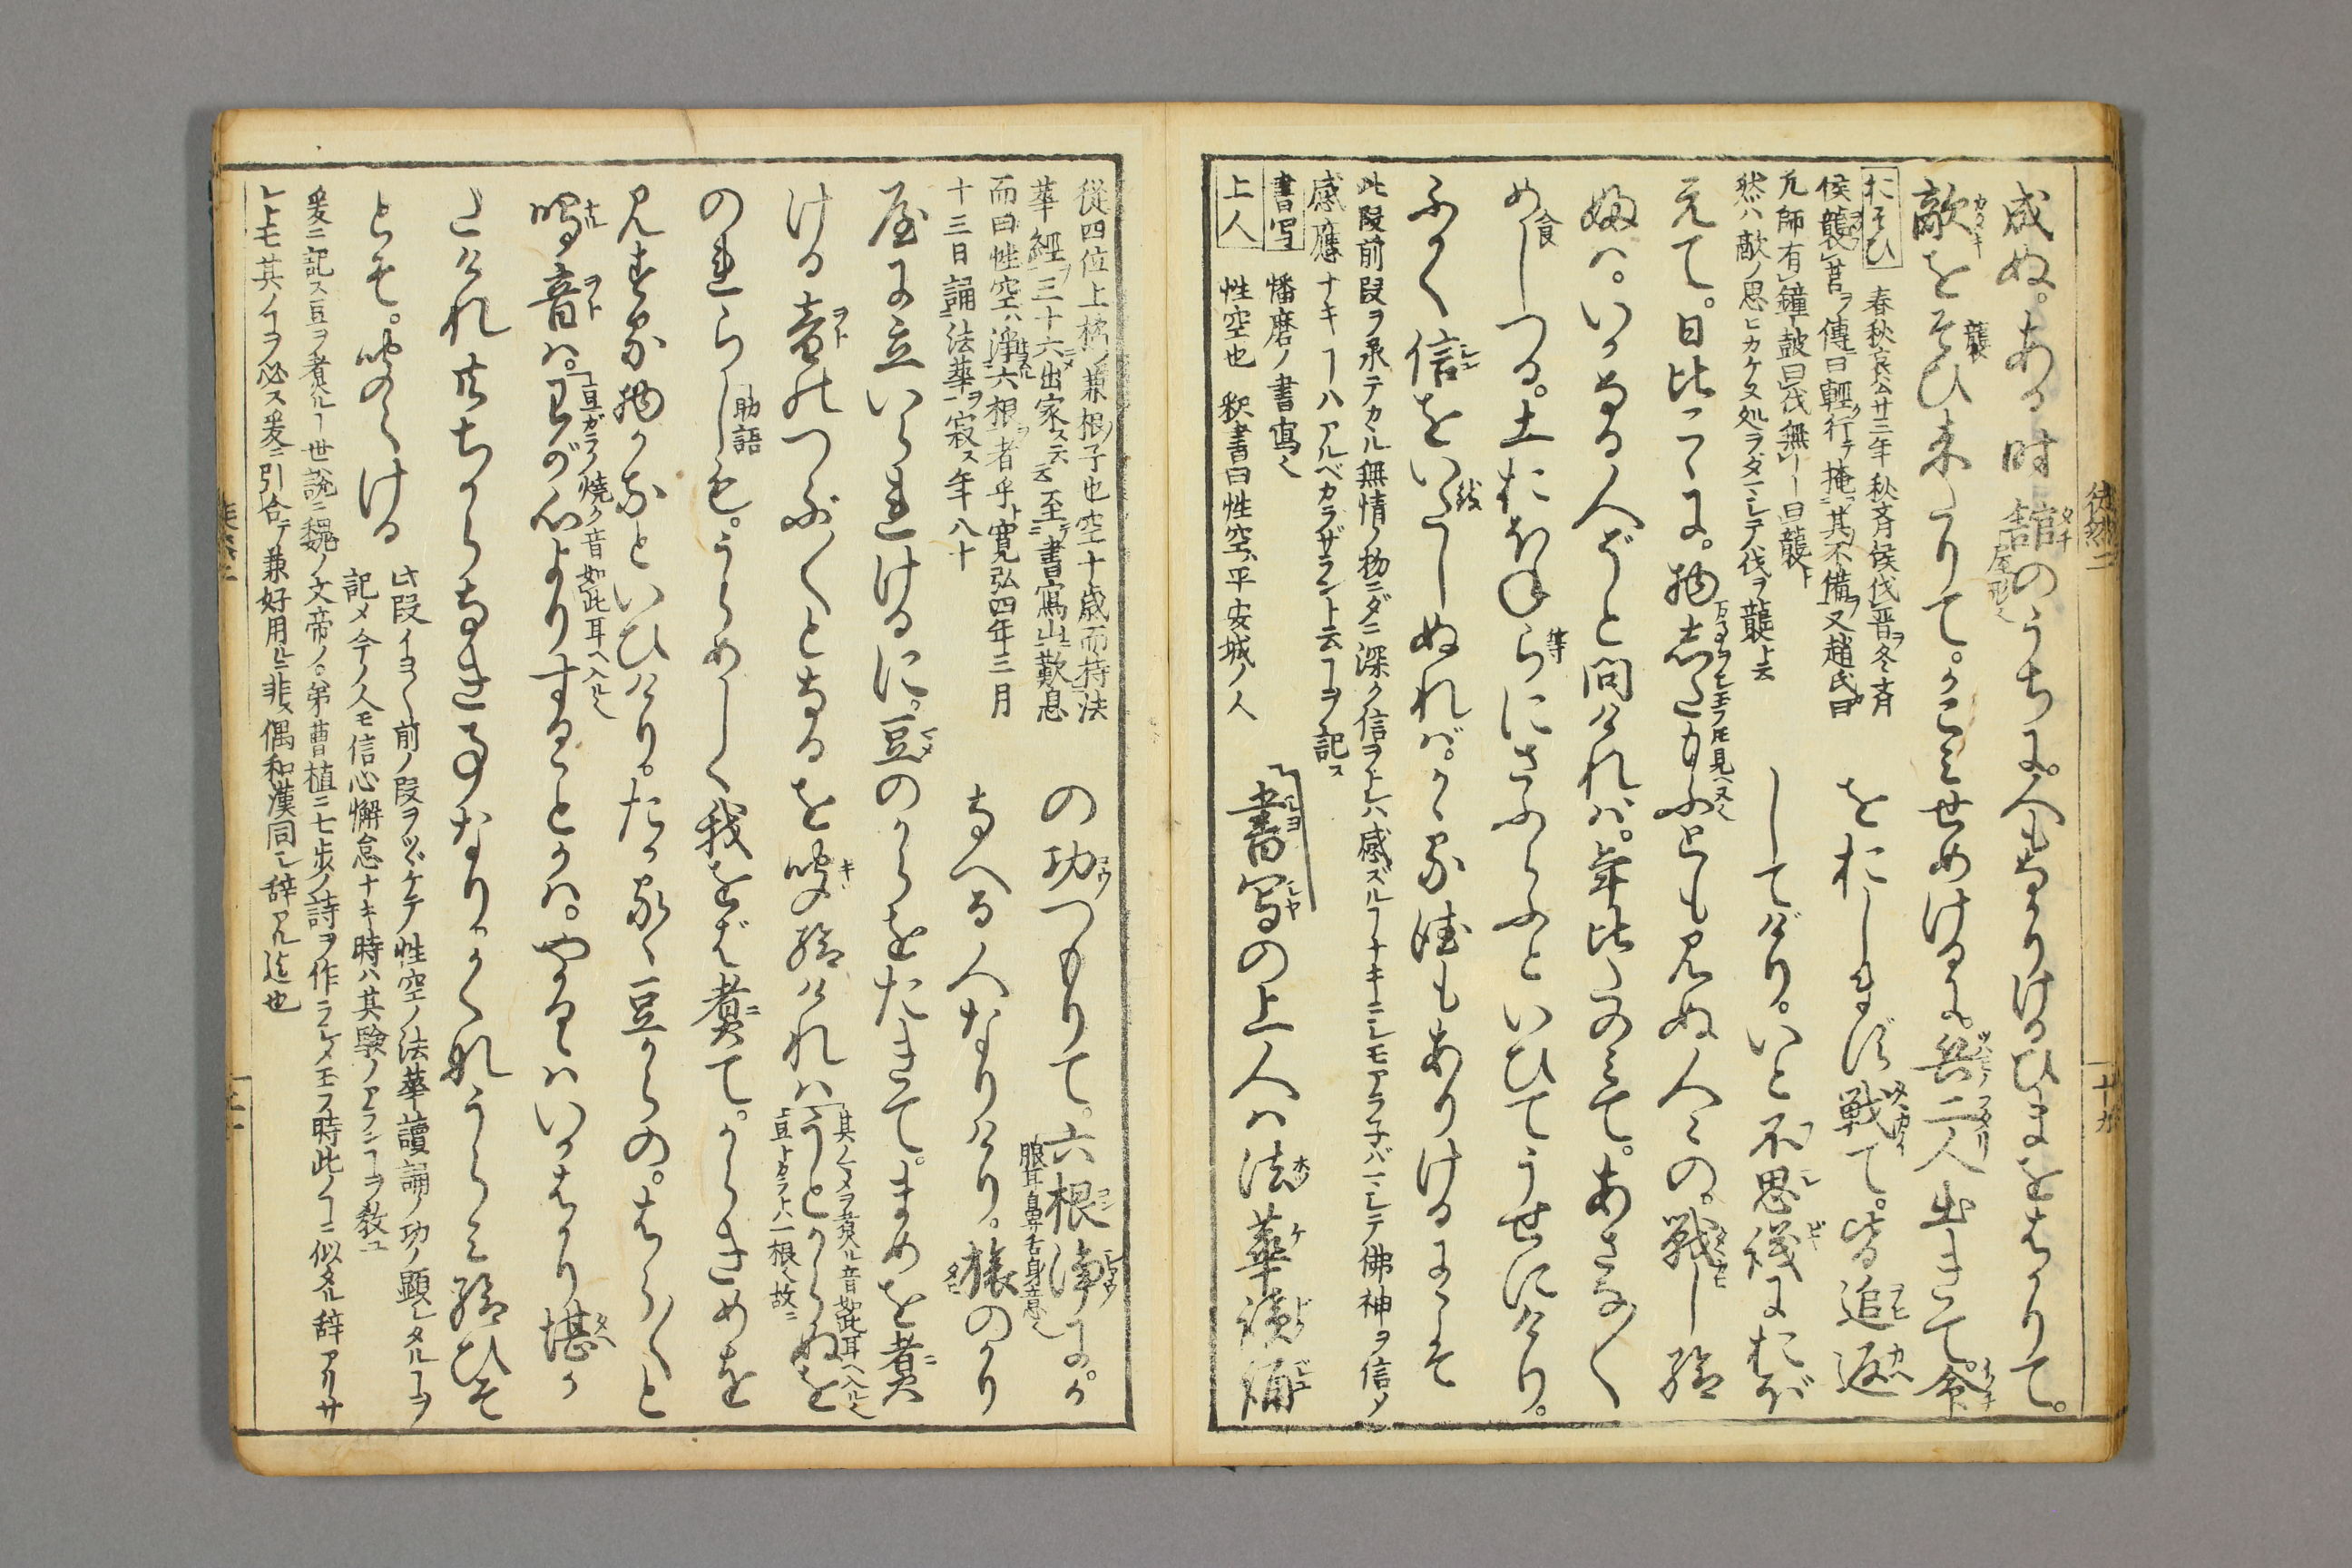 成ぬ。ある時館のうちに。人もなかりけるひまをはかりて。
敵をそひ来りて。かこみせめけるに。兵二人出きて。命
おそひ
春秋哀公廿三年秋斉侯伐晋ヲ冬斉
侯襲莒ヲ傳曰軽行テ掩其不備ヲ又趙氏曰
凡師有鐘鼓曰伐無ヿ曰襲ト
然ハ敵ノ思ヒカケヌ処ヲダマシテ伐ヲ襲ト云
をおしまず戦て。皆追返
してげり。いと不思議におぼ
えて。日比こゝに。物したまふとも見ぬ人々の。戦し給
ふは。いかなる人ぞと問ければ。年比たのみて。あさな〱
めしつる。土おほねらにさふらふといひてうせにけり。
ふかく信をいたしぬれば。かゝる徳もありけるにこそ
此段前段ヲ承テカヽル無情ノ物ニダニ深ク信ヲナセハ感ズルヿナキニシモアラ子バマシテ佛神ヲ信ノ
感應ナキヿハアルベカラザラント云ヿヲ記ス
書写
上人
幡磨ノ書寫也
性空也 釈書曰性空ハ平安城ノ人
書写の上人は法華読誦
従四位上橘ノ兼根子也空十歳而持法
華經ヲ三十六出家ス云云至書寫山ニ歎息
而曰性空ハ淨六根ヲ者乎ト寛弘四年三月
十三日誦法華ヲ寂ス年八十
の功つもりて。六根浄に。か
眼耳鼻舌身意也
なへる人なりけり。旅のかり
屋に立いられけるに。豆のからをたきて。まめを煮
ける音のつぶ〱となるを聞給ければ
其ノマメヲ煮ル音此耳ヘ入ル也
豆トカラトハ一根也故ニ
うとからぬを
のれらしも。うらめしく我をば煮て。からきめを
助語
見する物かなといひけり。たかるゝ豆からの。はら〱と
鳴音は。
豆ガラノ焼ク音如此耳ヘ入ル也
我が心よりすることかは。やかるゝはいかばかり堪か
たけれ共ちからなき事なり。かくなうらみ給ひそ
とぞ。聞えける
此段イヨ〱前ノ段ヲツヾケテ性空ノ法華讀誦ノ功ノ顕レタルヿヲ
記メ今ノ人モ信心懈怠ナキ時ハ其験ノアランヿヲ教ユ
爰ニ記ス豆ヲ煮ルヿ世説ニ魏ノ文帝ノ。弟曹植ニ七歩ノ詩ヲ作ラシメ玉フ時此ノヿニ似タル辞アリサ
レトモ其ノヿヲ必ス爰ニ引合テ兼好用ルニ非ズ偶和漢同シ辞アル迄也
徒然二
十九